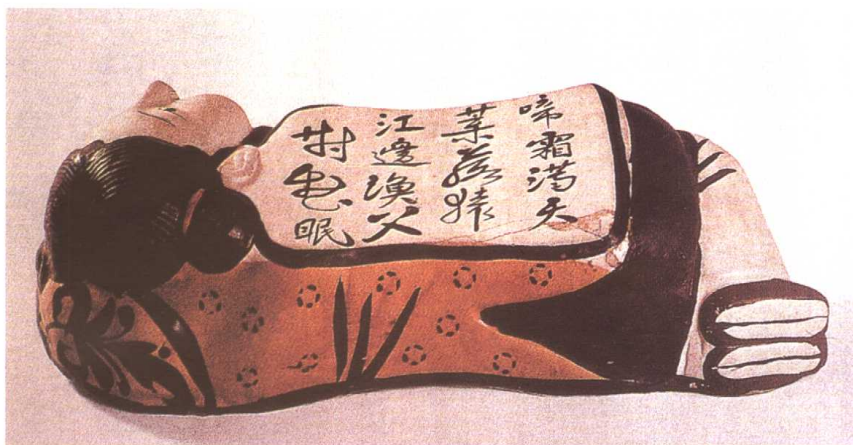 啼霜滿天
葉落猿
江邊漁父
對愁眠